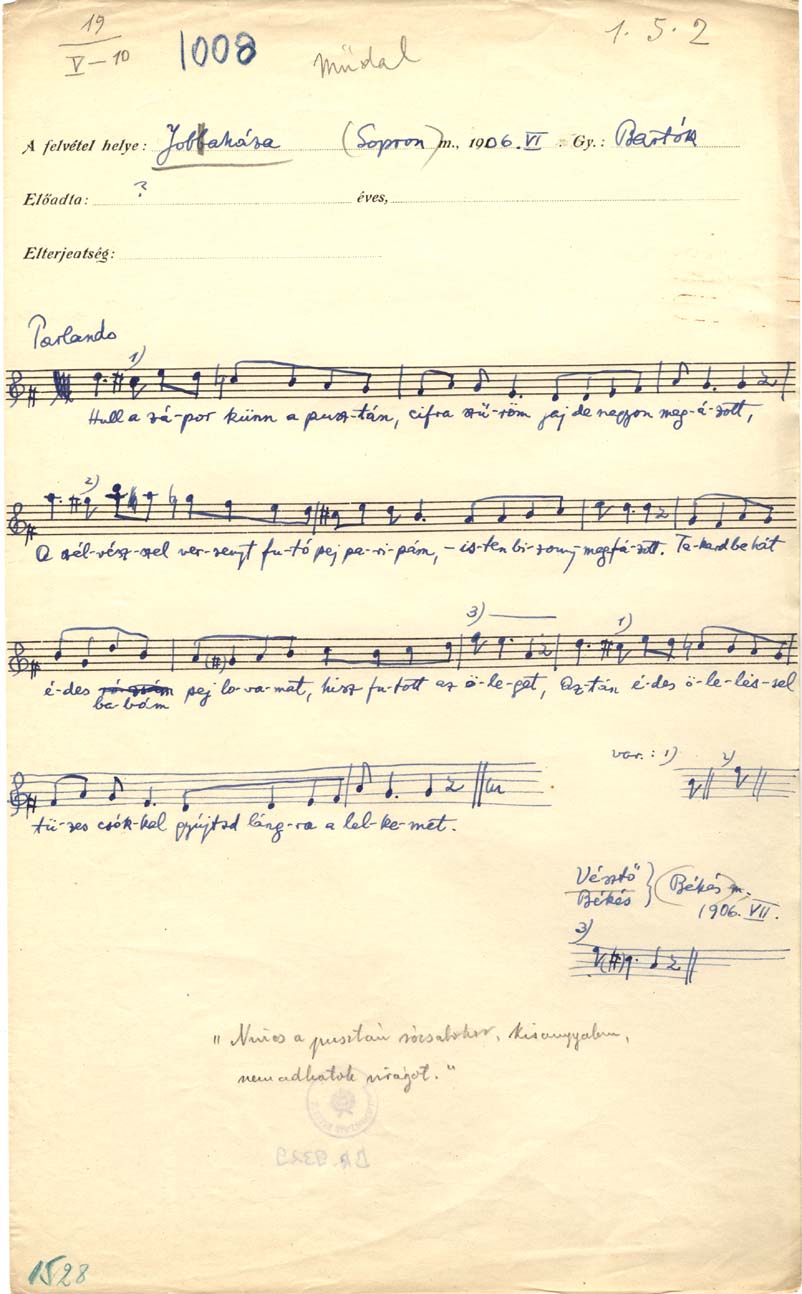 19
V-10
1008
Műdal
1. 5. 2
A felvétel helye: Jobbaháza (Sopron) m., 1906. VI. Gy.: Bartók
Előadta: ? éves,
Elterjeatség:
Parlando
1)
Hull a zá-por künn a pusz-tán, cifra szű-röm jaj de nagyon meg-á-zott,
2)
A szél-vész-szel ver-senyt fu-tó pej pa-ri-pám, - is-ten bi-zony megfá-zott. Ta-kard be hát
3) 1)
é-des rózsám pej lo-va-mat, hisz fu-tott az ö-le-get, Az-tán é-des ö-le-lés-sel
ba-bám
var.: 1) 2)
tü-zes csók-kal gyújtsd láng-ra a lel-ke-met.
Vésztő
Békés } (Békés) m.
1906. VII.
3)
" Nincs a pusztán rózsabokor, kisangyalom,
nem adhatok virágot. "
1528